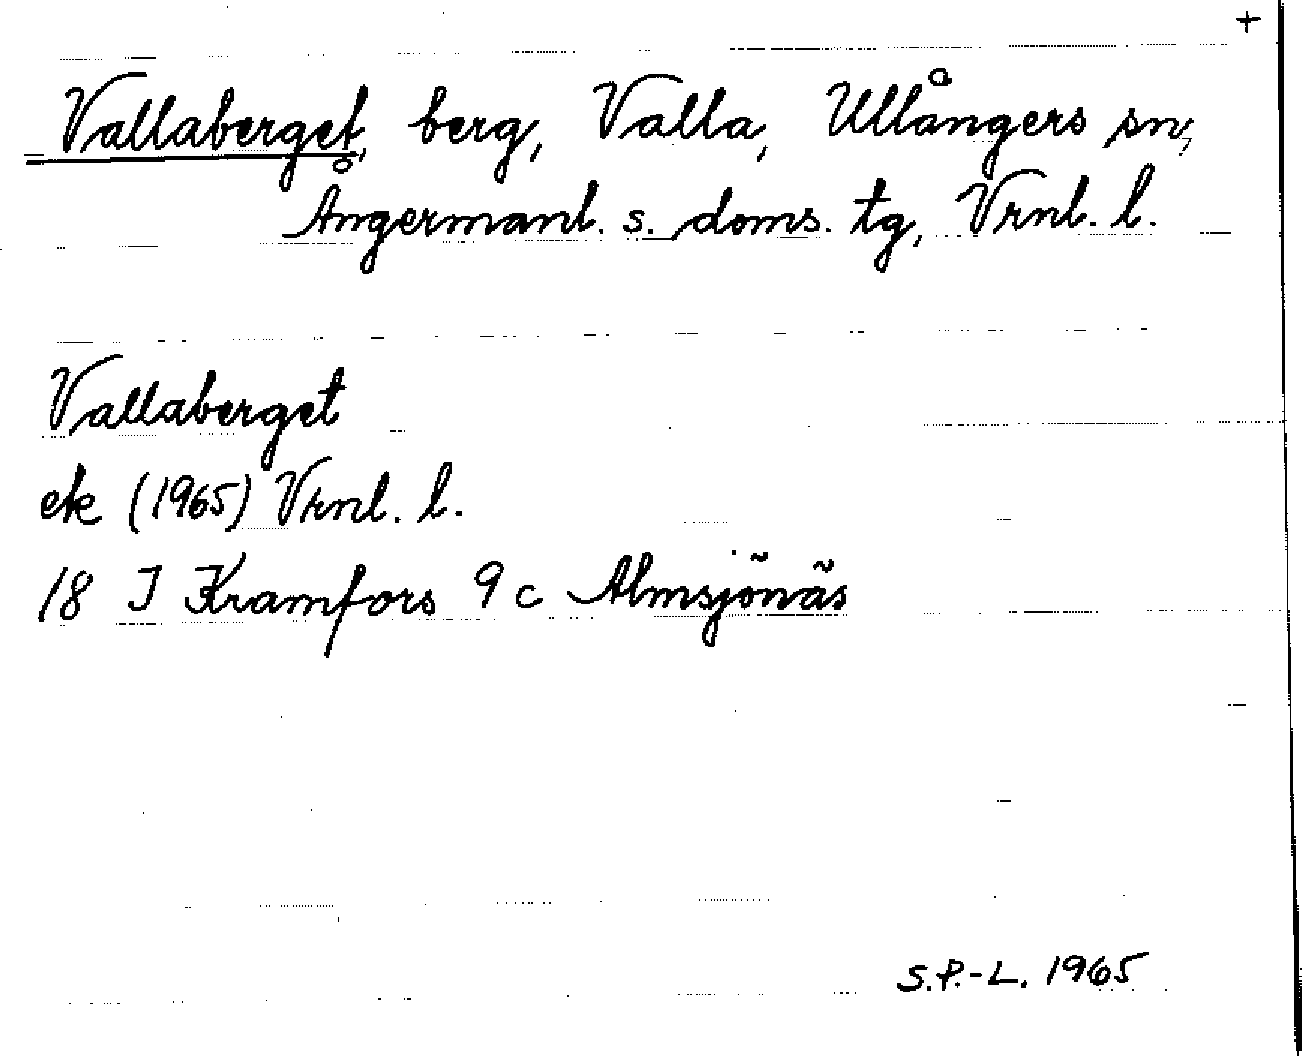 +
Vallaberget, berg, Valla, Ullångers sn,
Ångermanl. s. doms. tg, Vrnl. l.
Vallaberget
ek (1965) Vrnl. l.
18 I Kramfors 9 c Almsjönäs
S.P.-L. 1965